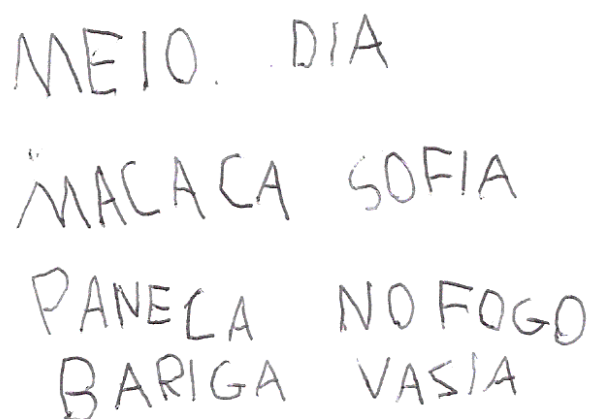 MEIO. DIA
MACACA SOFIA
PANELA NO FOGO
BARIGA VASIA